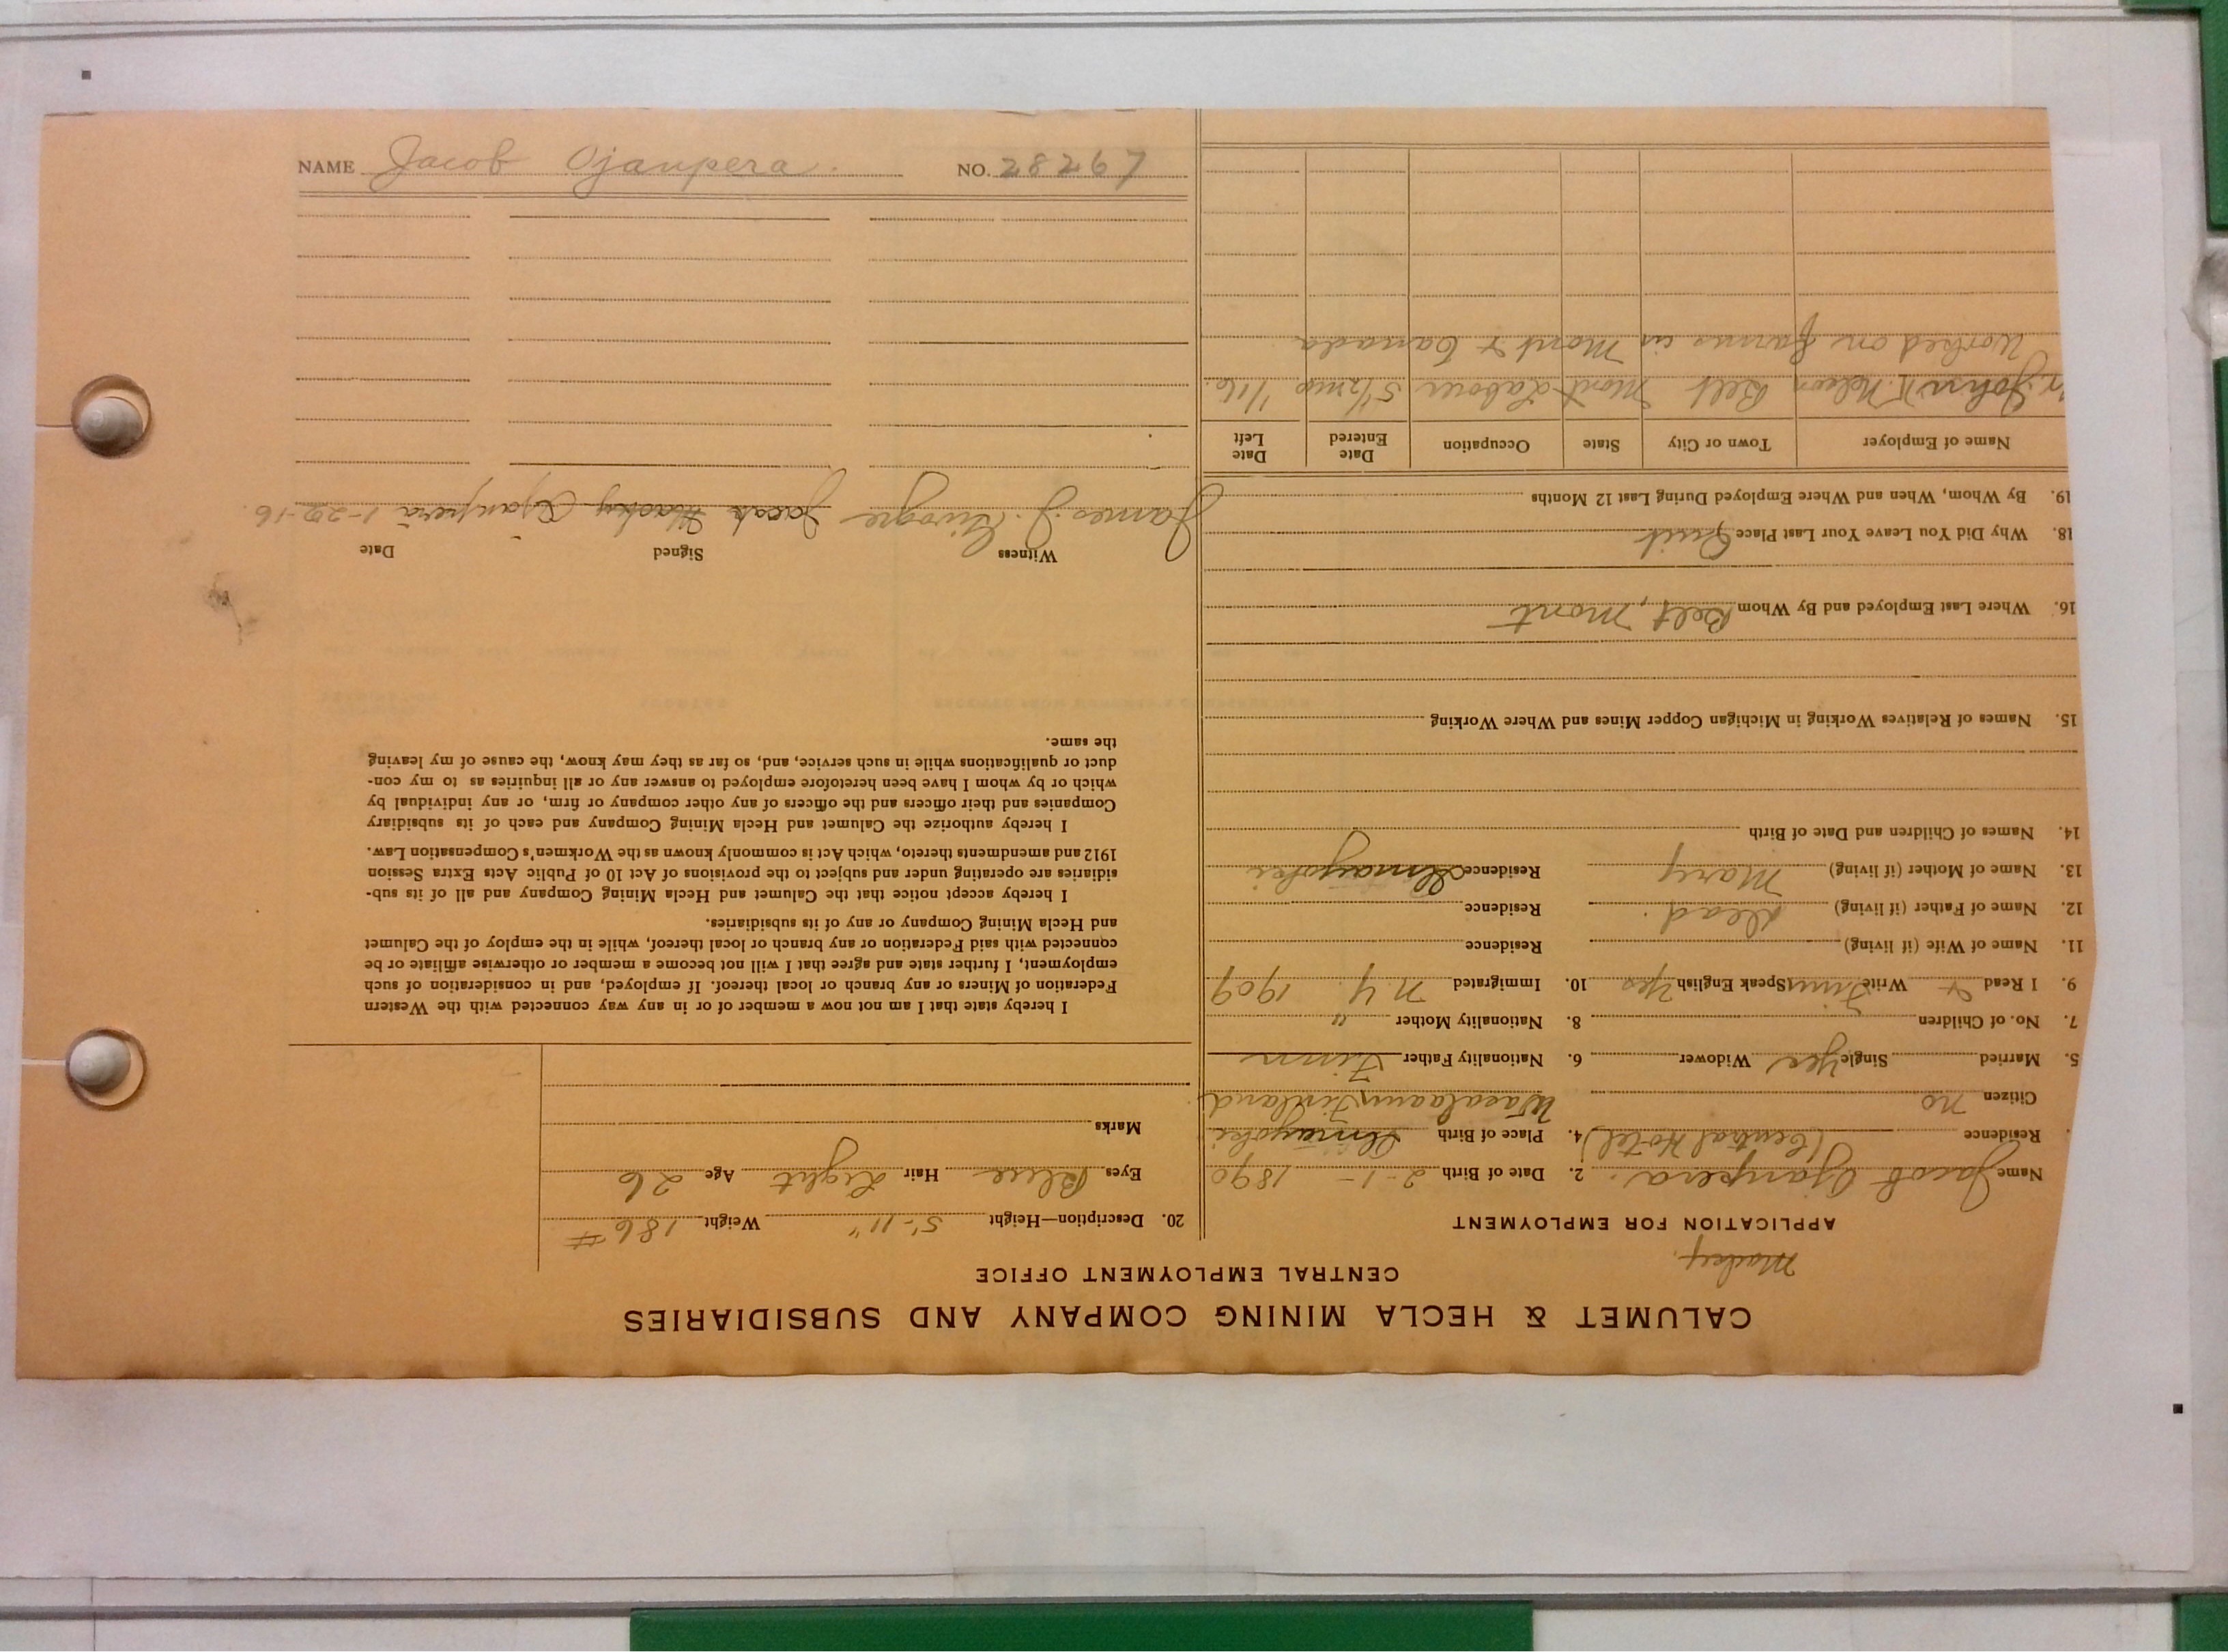 CALUMET & HECLA MINING COMPANY AND SUBSIDIARIES
CENTRAL EMPLOYMENT OFFICE
APPLICATION FOR EMPLOYMENT
Name Jacob Ojanpera. 2. Date of Birth 2-1- 1890
Residence (Central Hotel) 4. Place of Birth Ilmayoki
Citizen no Finland
5. Married Single yes Widower 6. Nationality Father Finn
7. No. of Children 8. Nationality Mother "
9. I Read & Write Finn Speak English Yes 10. Immigrated N.Y. 1909
11. Name of Wife (if living) Residence
12. Name of Father (if living) Dead. Residence
13. Name of Mother (if living) Mary Residence Ilmayoki
14. Names of Children and Date of Birth
15. Names of Relatives Working in Michigan Copper Mines and Where Working
16. Where Last Employed and By Whom Belt, Mont
18. Why Did You Leave Your Last Place Quit
19. By Whom, When and Where Employed During Last 12 Months
Name of Employer Town or City State Occupation Date Entered Date Left
John Nelson Belt Mont Laborer 5 1/2 mo 1/16.
Worked on farms in Mont & Canada
20. Description—Height 5'-11" Weight 186 #
Eyes Blue Hair Light Age 26
Marks
I hereby state that I am not now a member of or in any way connected with the Western
Federation of Miners or any branch or local thereof. If employed, and in consideration of such
employment, I further state and agree that I will not become a member or otherwise affiliate or be
connected with said Federation or any branch or local thereof, while in the employ of the Calumet
and Hecla Mining Company or any of its subsidiaries.
I hereby accept notice that the Calumet and Hecla Mining Company and all of its sub-
sidiaries are operating under and subject to the provisions of Act 10 of Public Acts Extra Session
1912 and amendments thereto, which Act is commonly known as the Workmen's Compensation Law.
I hereby authorize the Calumet and Hecla Mining Company and each of its subsidiary
Companies and their officers and the officers of any other company or firm, or any individual by
which or by whom I have been heretofore employed to answer any or all inquiries as to my con-
duct or qualifications while in such service, and, so far as they may know, the cause of my leaving
the same.
Witness Signed Date
James J. Jacob Ojanperä 1-29-16.
NAME Jacob Ojanpera. NO. 28267